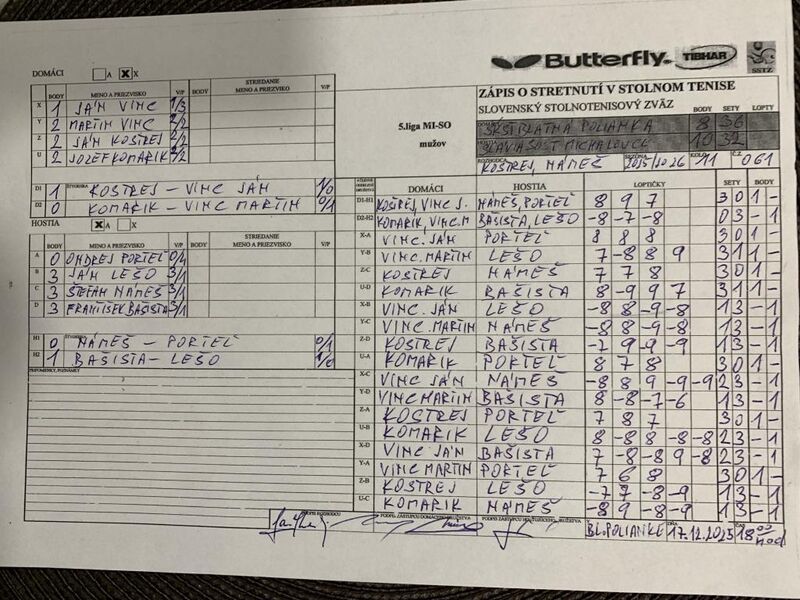 Butterfly. TIBHAR SSTZ
DOMÁCI A X X
BODY MENO A PRIEZVISKO V/P BODY STRIEDANIE MENO A PRIEZVISKO V/P
X 1 JÁN VINC 1/3
Y 2 MARTIN VINC 2/2
Z 2 JÁN KOSTREJ 2/2
U 2 JOZEF KOMARIK 2/2
D1 1 ŠTVORHRA KOSTREJ - VINC JÁN 1/0
D2 0 KOMARIK - VINC MARTIN 0/1
HOSTIA X A X
BODY MENO A PRIEZVISKO V/P BODY STRIEDANIE MENO A PRIEZVISKO V/P
A 0 ONDREJ PORTEĽ 0/4
B 3 JÁN LEŠO 3/1
C 3 ŠTEFAN NÁMEŠ 3/1
D 3 FRANTIŠEK BAŠISTA 3/1
H1 0 ŠTVORHRA NÁMEŠ - PORTEĽ 0/1
H2 1 BAŠISTA - LEŠO 1/0
PRIPOMIENKY, POZNÁMKY
5.liga MI-SO
mužov
ZÁPIS O STRETNUTÍ V STOLNOM TENISE
SLOVENSKÝ STOLNOTENISOVÝ ZVÄZ BODY SETY LOPTY
ŠKST BLATNÁ POLIANKA 8 36
SLAVIA SOŠT MICHALOVCE 10 32
ROZHODCA KOSTREJ, NÁMEŠ SEZÓNA 2025/2026 KOLO 11 Č.Z. 061
DOMÁCI HOSTIA LOPTIČKY SETY BODY
D1-H1 KOSTREJ, VINC J. NÁMEŠ, PORTEĽ 8 9 7 3 0 1 -
D2-H2 KOMARIK, VINC.M BAŠISTA, LEŠO -8 -7 -8 0 3 - 1
X-A VINC. JÁN PORTEĽ 8 8 8 3 0 1 -
Y-B VINC. MARTIN LEŠO 7 -8 8 9 3 1 1 -
Z-C KOSTREJ NÁMEŠ 7 7 8 3 0 1 -
U-D KOMARIK BAŠISTA 8 -9 9 7 3 1 1 -
X-B VINC. JÁN LEŠO -8 8 -9 -8 1 3 - 1
Y-C VINC. MARTIN NÁMEŠ -8 8 -9 -8 1 3 - 1
Z-D KOSTREJ BAŠISTA -2 9 -9 -9 1 3 - 1
U-A KOMARIK PORTEĽ 8 7 8 3 0 1 -
X-C VINC JÁN NÁMEŠ -8 8 9 -9 -9 2 3 - 1
Y-D VINC MARTIN BAŠISTA 8 -8 -7 -6 1 3 - 1
Z-A KOSTREJ PORTEĽ 7 8 7 3 0 1 -
U-B KOMARIK LEŠO 8 -8 8 -8 -8 2 3 - 1
X-D VINC JÁN BAŠISTA 7 -8 -8 9 -8 2 3 - 1
Y-A VINC MARTIN PORTEĽ 7 6 8 3 0 1 -
Z-B KOSTREJ LEŠO -7 7 -8 -9 1 3 - 1
U-C KOMARIK NÁMEŠ -8 9 -8 -9 1 3 - 1
PODPIS ROZHODCU PODPIS ZÁSTUPCU DOMÁCEHO DRUŽSTVA PODPIS ZÁSTUPCU HOSŤUJÚCEHO DRUŽSTVA BL. POLIANKE DŇA 17.12.2025 ČAS 18 00 hod